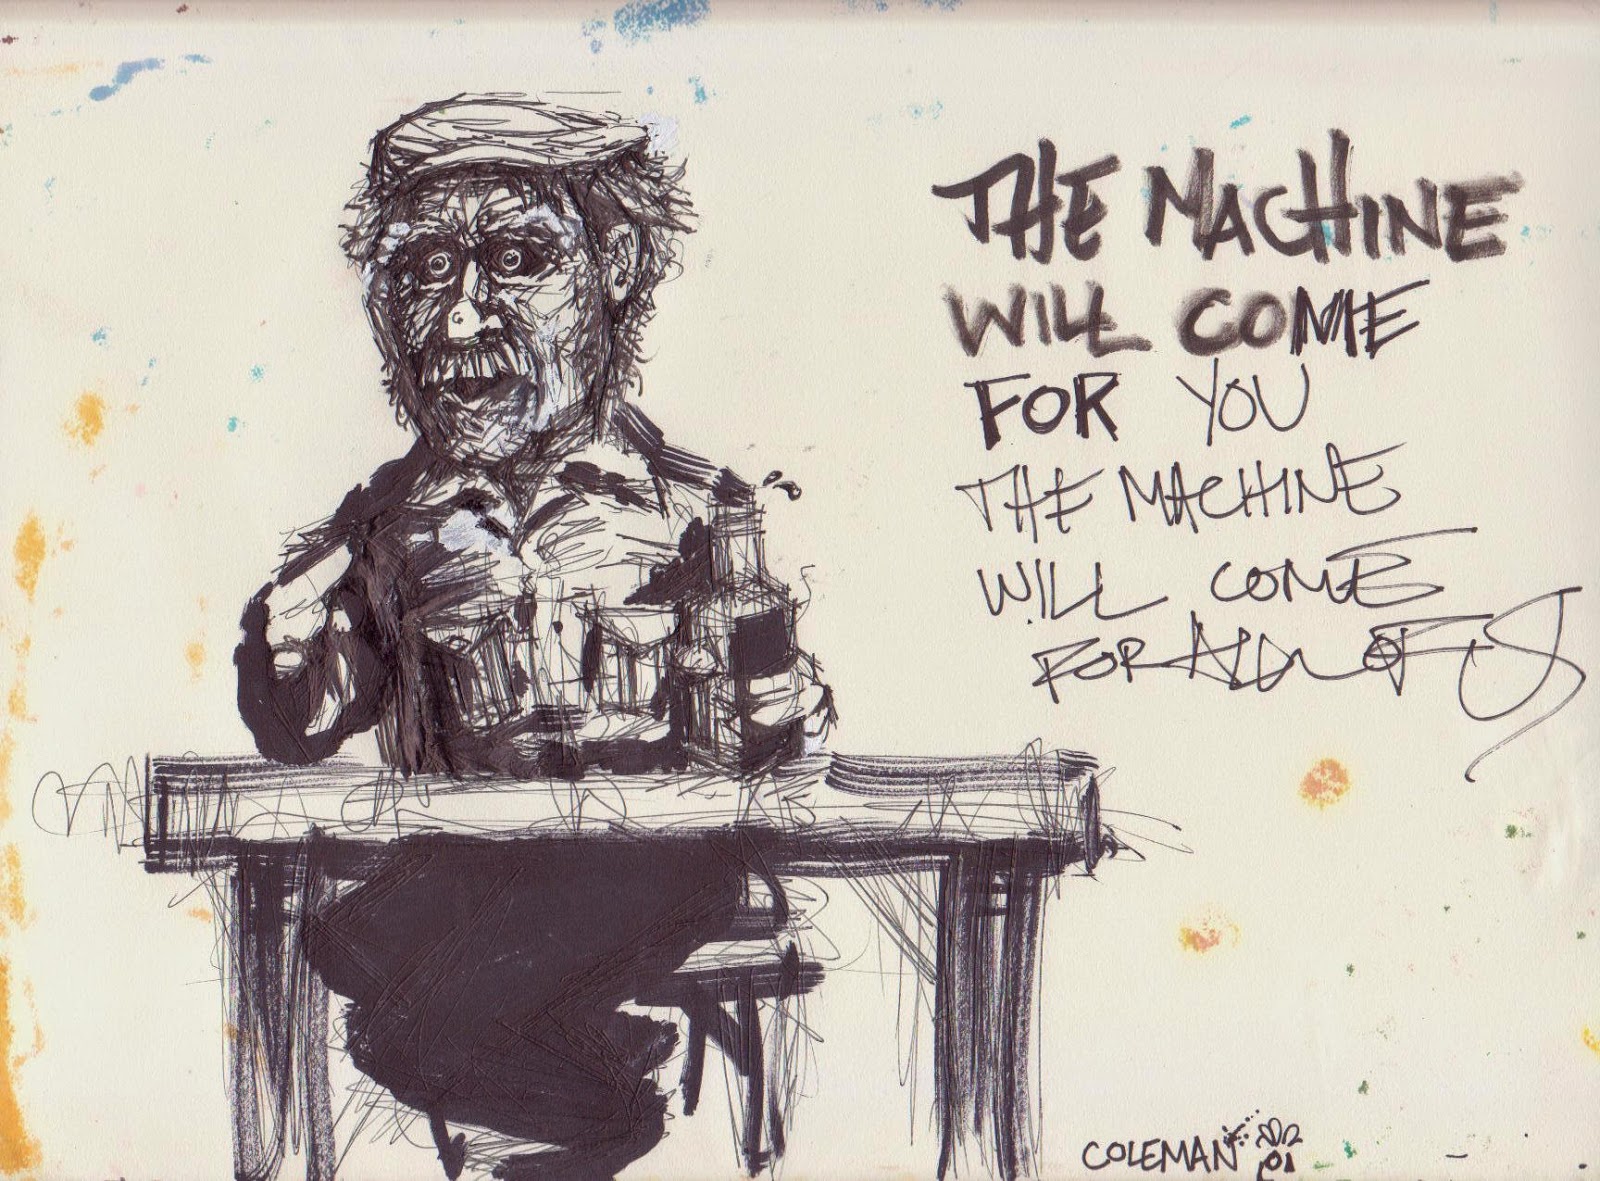 THE MACHINE
WILL COME
FOR YOU
THE MACHINE
WILL COME
FOR ALL OF US
COLEMAN
01